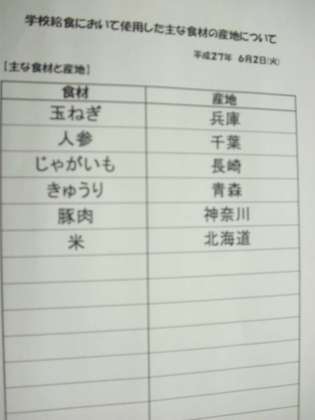 学校給食において使用した主な食材の産地について
平成27年 6月2日(火)
【主な食材と産地】
食材 産地
玉ねぎ 兵庫
人参 千葉
じゃがいも 長崎
きゅうり 青森
豚肉 神奈川
米 北海道